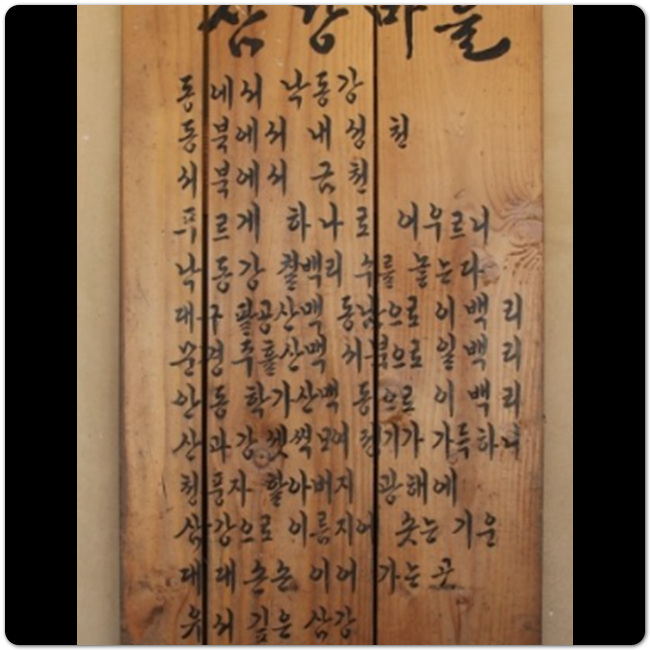 삼강마을
동에서 낙동강
동북에서 내성천
서북에서 금천
푸르게 하나로 어우르니
낙동강 칠백리 수를 놓는다
대구 팔공산맥 동남으로 이백리
문경 주흘산맥 서북으로 일백리
안동 학가산맥 동으로 이백리
산과 강 셋씩 모여 정기가 가득하니
청풍자 할아버지 광태에
삼강으로 이름지어 솟는 기운
대대손손 이어 가는 곳
유서 깊은 삼강